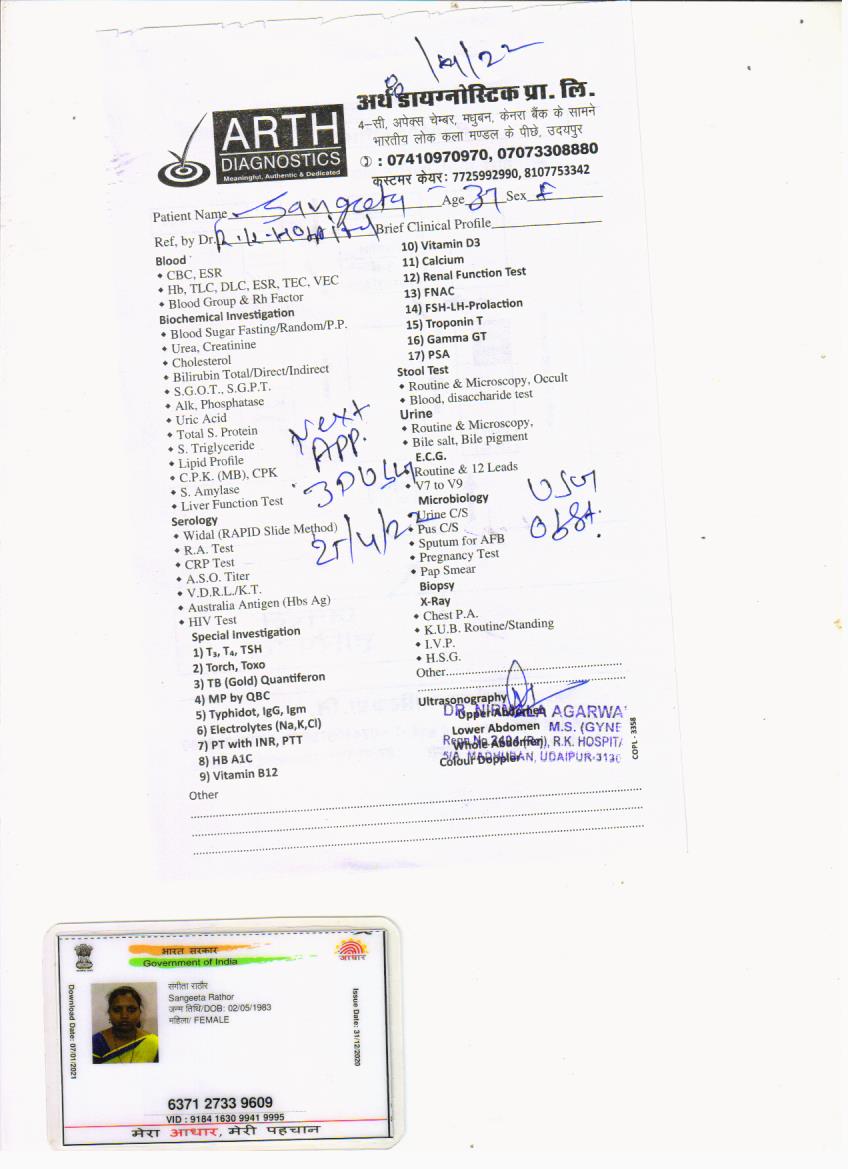 अर्थ डायग्नोस्टिक प्रा. लि.
4-सी, अपेक्स चेम्बर, मधुबन, केनरा बैंक के सामने
भारतीय लोक कला मण्डल के पीछे, उदयपुर
: 07410970970, 07073308880
कस्टमर केयर: 7725992990, 8107753342
ARTH
DIAGNOSTICS
Meaningful, Authentic & Dedicated
Patient Name Sangeeta Age 37 Sex F
Ref, by Dr. R.K. Hospital Brief Clinical Profile
Blood
CBC, ESR
Hb, TLC, DLC, ESR, TEC, VEC
Blood Group & Rh Factor
Biochemical Investigation
Blood Sugar Fasting/Random/P.P.
Urea, Creatinine
Cholesterol
Bilirubin Total/Direct/Indirect
S.G.O.T., S.G.P.T.
Alk, Phosphatase
Uric Acid
Total S. Protein
S. Triglyceride
Lipid Profile
C.P.K. (MB), CPK
S. Amylase
Liver Function Test
Next
APP.
Serology
Widal (RAPID Slide Method)
R.A. Test
CRP Test
A.S.O. Titer
V.D.R.L./K.T.
Australia Antigen (Hbs Ag)
HIV Test
25/4/22
Special Investigation
1) T₃, T₄, TSH
2) Torch, Toxo
3) TB (Gold) Quantiferon
4) MP by QBC
5) Typhidot, IgG, Igm
6) Electrolytes (Na,K,Cl)
7) PT with INR, PTT
8) HB A1C
9) Vitamin B12
10) Vitamin D3
11) Calcium
12) Renal Function Test
13) FNAC
14) FSH-LH-Prolaction
15) Troponin T
16) Gamma GT
17) PSA
Stool Test
Routine & Microscopy, Occult
Blood, disaccharide test
Urine
Routine & Microscopy,
Bile salt, Bile pigment
E.C.G.
Routine & 12 Leads
V7 to V9
Microbiology
Urine C/S
Pus C/S
Sputum for AFB
Pregnancy Test
Pap Smear
USG
Obst.
Biopsy
X-Ray
Chest P.A.
K.U.B. Routine/Standing
I.V.P.
H.S.G.
Other
Ultrasonography
Upper Abdomen
Lower Abdomen
Whole Abdomen
Colour Doppler
DR. NIRMALA AGARWA
M.S. (GYNE
Regn No. 2494 (Raj), R.K. HOSPITA
5/A, MADHUBAN, UDAIPUR-3130
COPL - 3358
Other
भारत सरकार
Government of India
आधार
Download Date: 07/01/2021
संगीता राठौर
Sangeeta Rathor
जन्म तिथि/DOB: 02/05/1983
महिला/ FEMALE
Issue Date: 31/12/2020
6371 2733 9609
VID : 9184 1630 9941 9995
मेरा आधार, मेरी पहचान